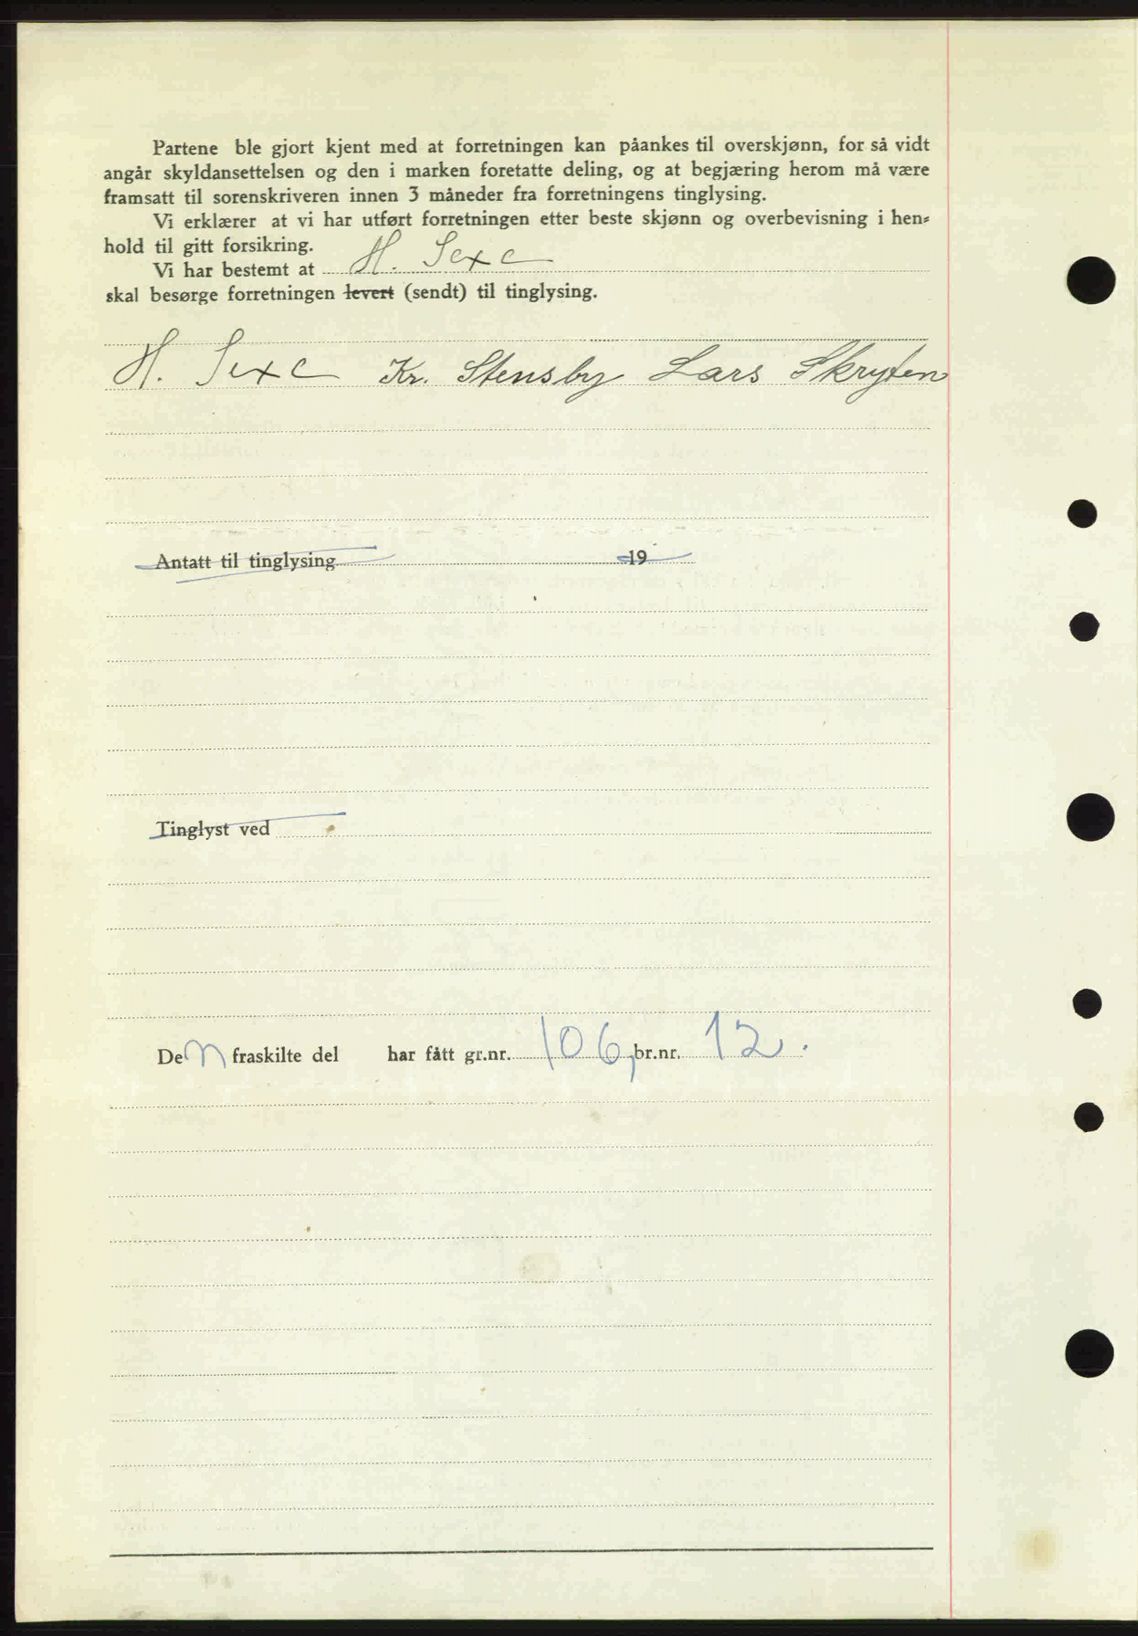 Partene ble gjort kjent med at forretningen kan påankes til overskjønn, for så vidt
angår skyldansettelsen og den i marken foretatte deling, og at begjæring herom må være
framsatt til sorenskriveren innen 3 måneder fra forretningens tinglysing.
Vi erklærer at vi har utført forretningen etter beste skjønn og overbevisning i hen-
hold til gitt forsikring.
Vi har bestemt at H. Sexe
skal besørge forretningen levert (sendt) til tinglysing.
H. Sexe Kr. Stensby Lars Skryten
Antatt til tinglysing 19
Tinglyst ved
Den fraskilte del har fått gr.nr. 106, br.nr. 12.